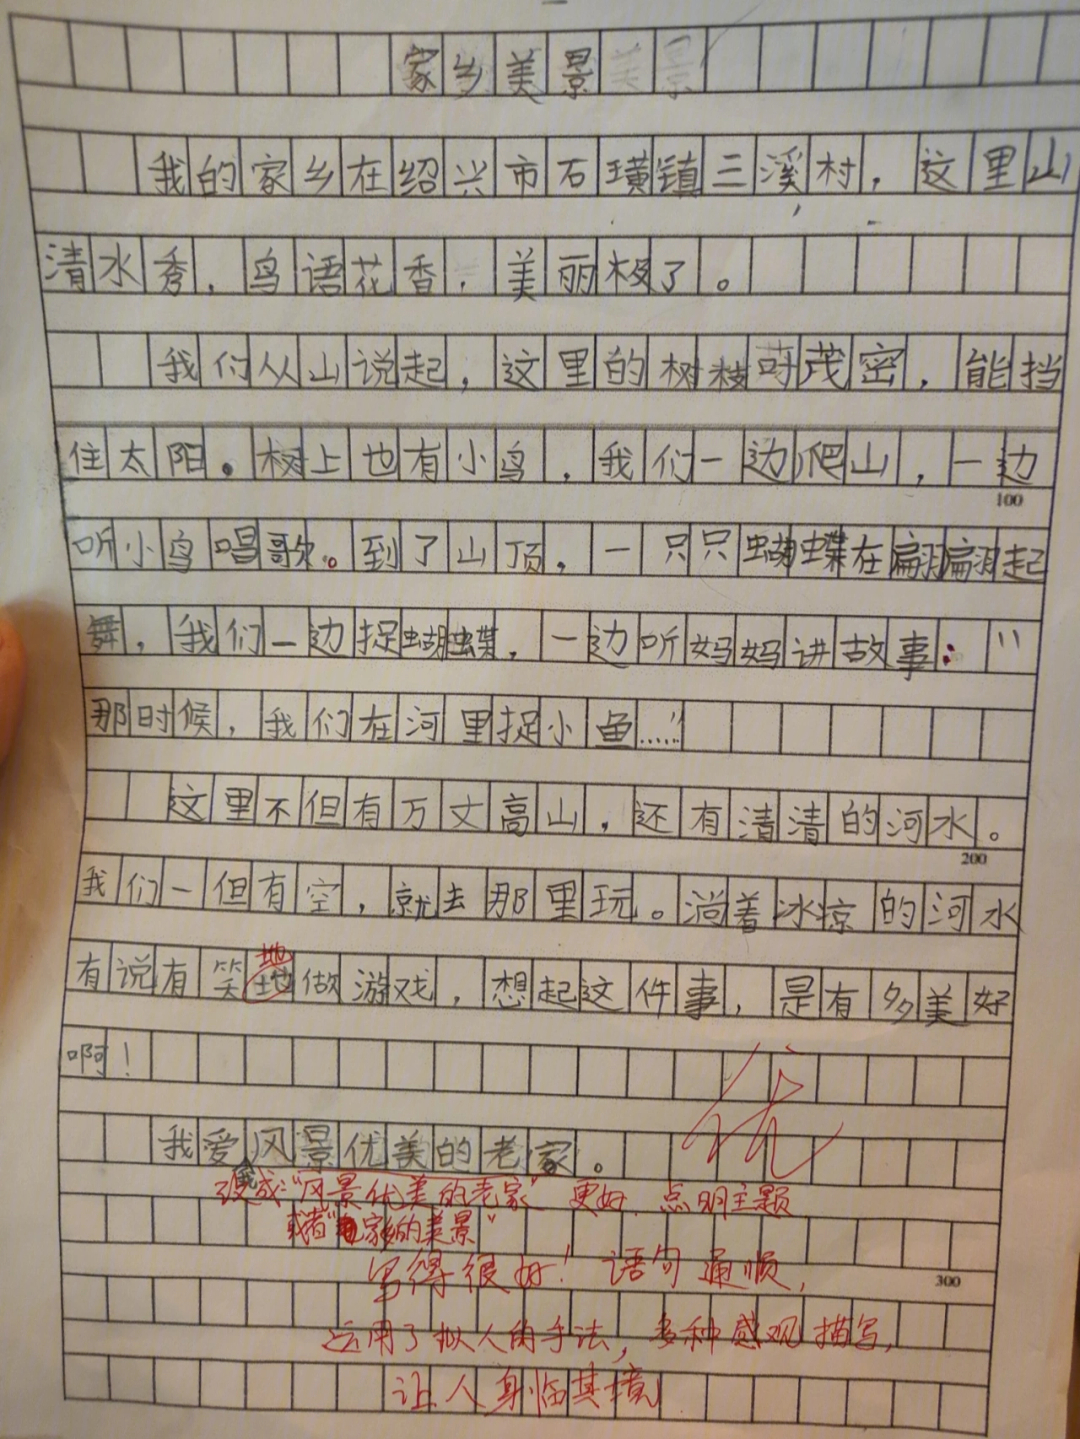 家乡美景
我的家乡在绍兴市石璜镇三溪村，这里山
清水秀，鸟语花香，美丽极了。
我们从山说起，这里的树枝茂密，能挡
住太阳。树上也有小鸟，我们一边爬山，一边
100
听小鸟唱歌。到了山顶，一只只蝴蝶在翩翩起
舞，我们一边捉蝴蝶，一边听妈妈讲故事：“
那时候，我们在河里捉小鱼……”
这里不但有万丈高山，还有清清的河水。
200
我们一但有空，就去那里玩。淌着冰凉的河水
有说有笑地做游戏，想起这件事，是有多美好
地
啊！
优
我爱我风景优美的老家。
改成：“风景优美的老家”更好 点明主题
或者“家乡的美景”
写得很好！语句通顺，
300
运用了拟人的手法，多种感观描写，
让人身临其境